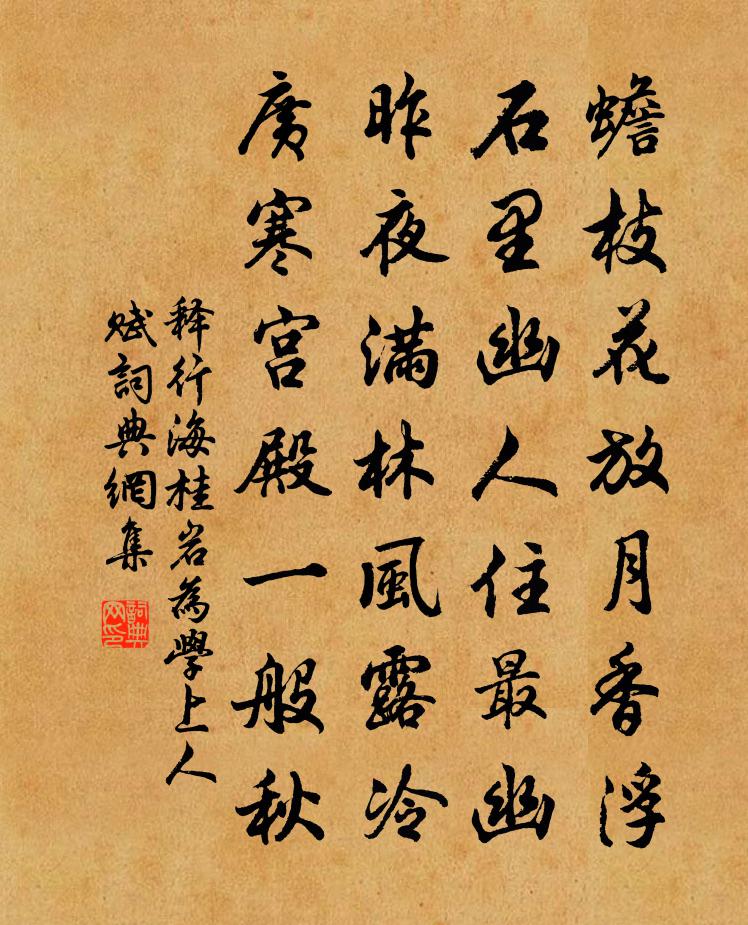 蟾枝花放月香浮
石里幽人住最幽
昨夜滿林風露冷
廣寒宮殿一般秋
释行海桂岩為學上人
賦詞典網集
詞典网印